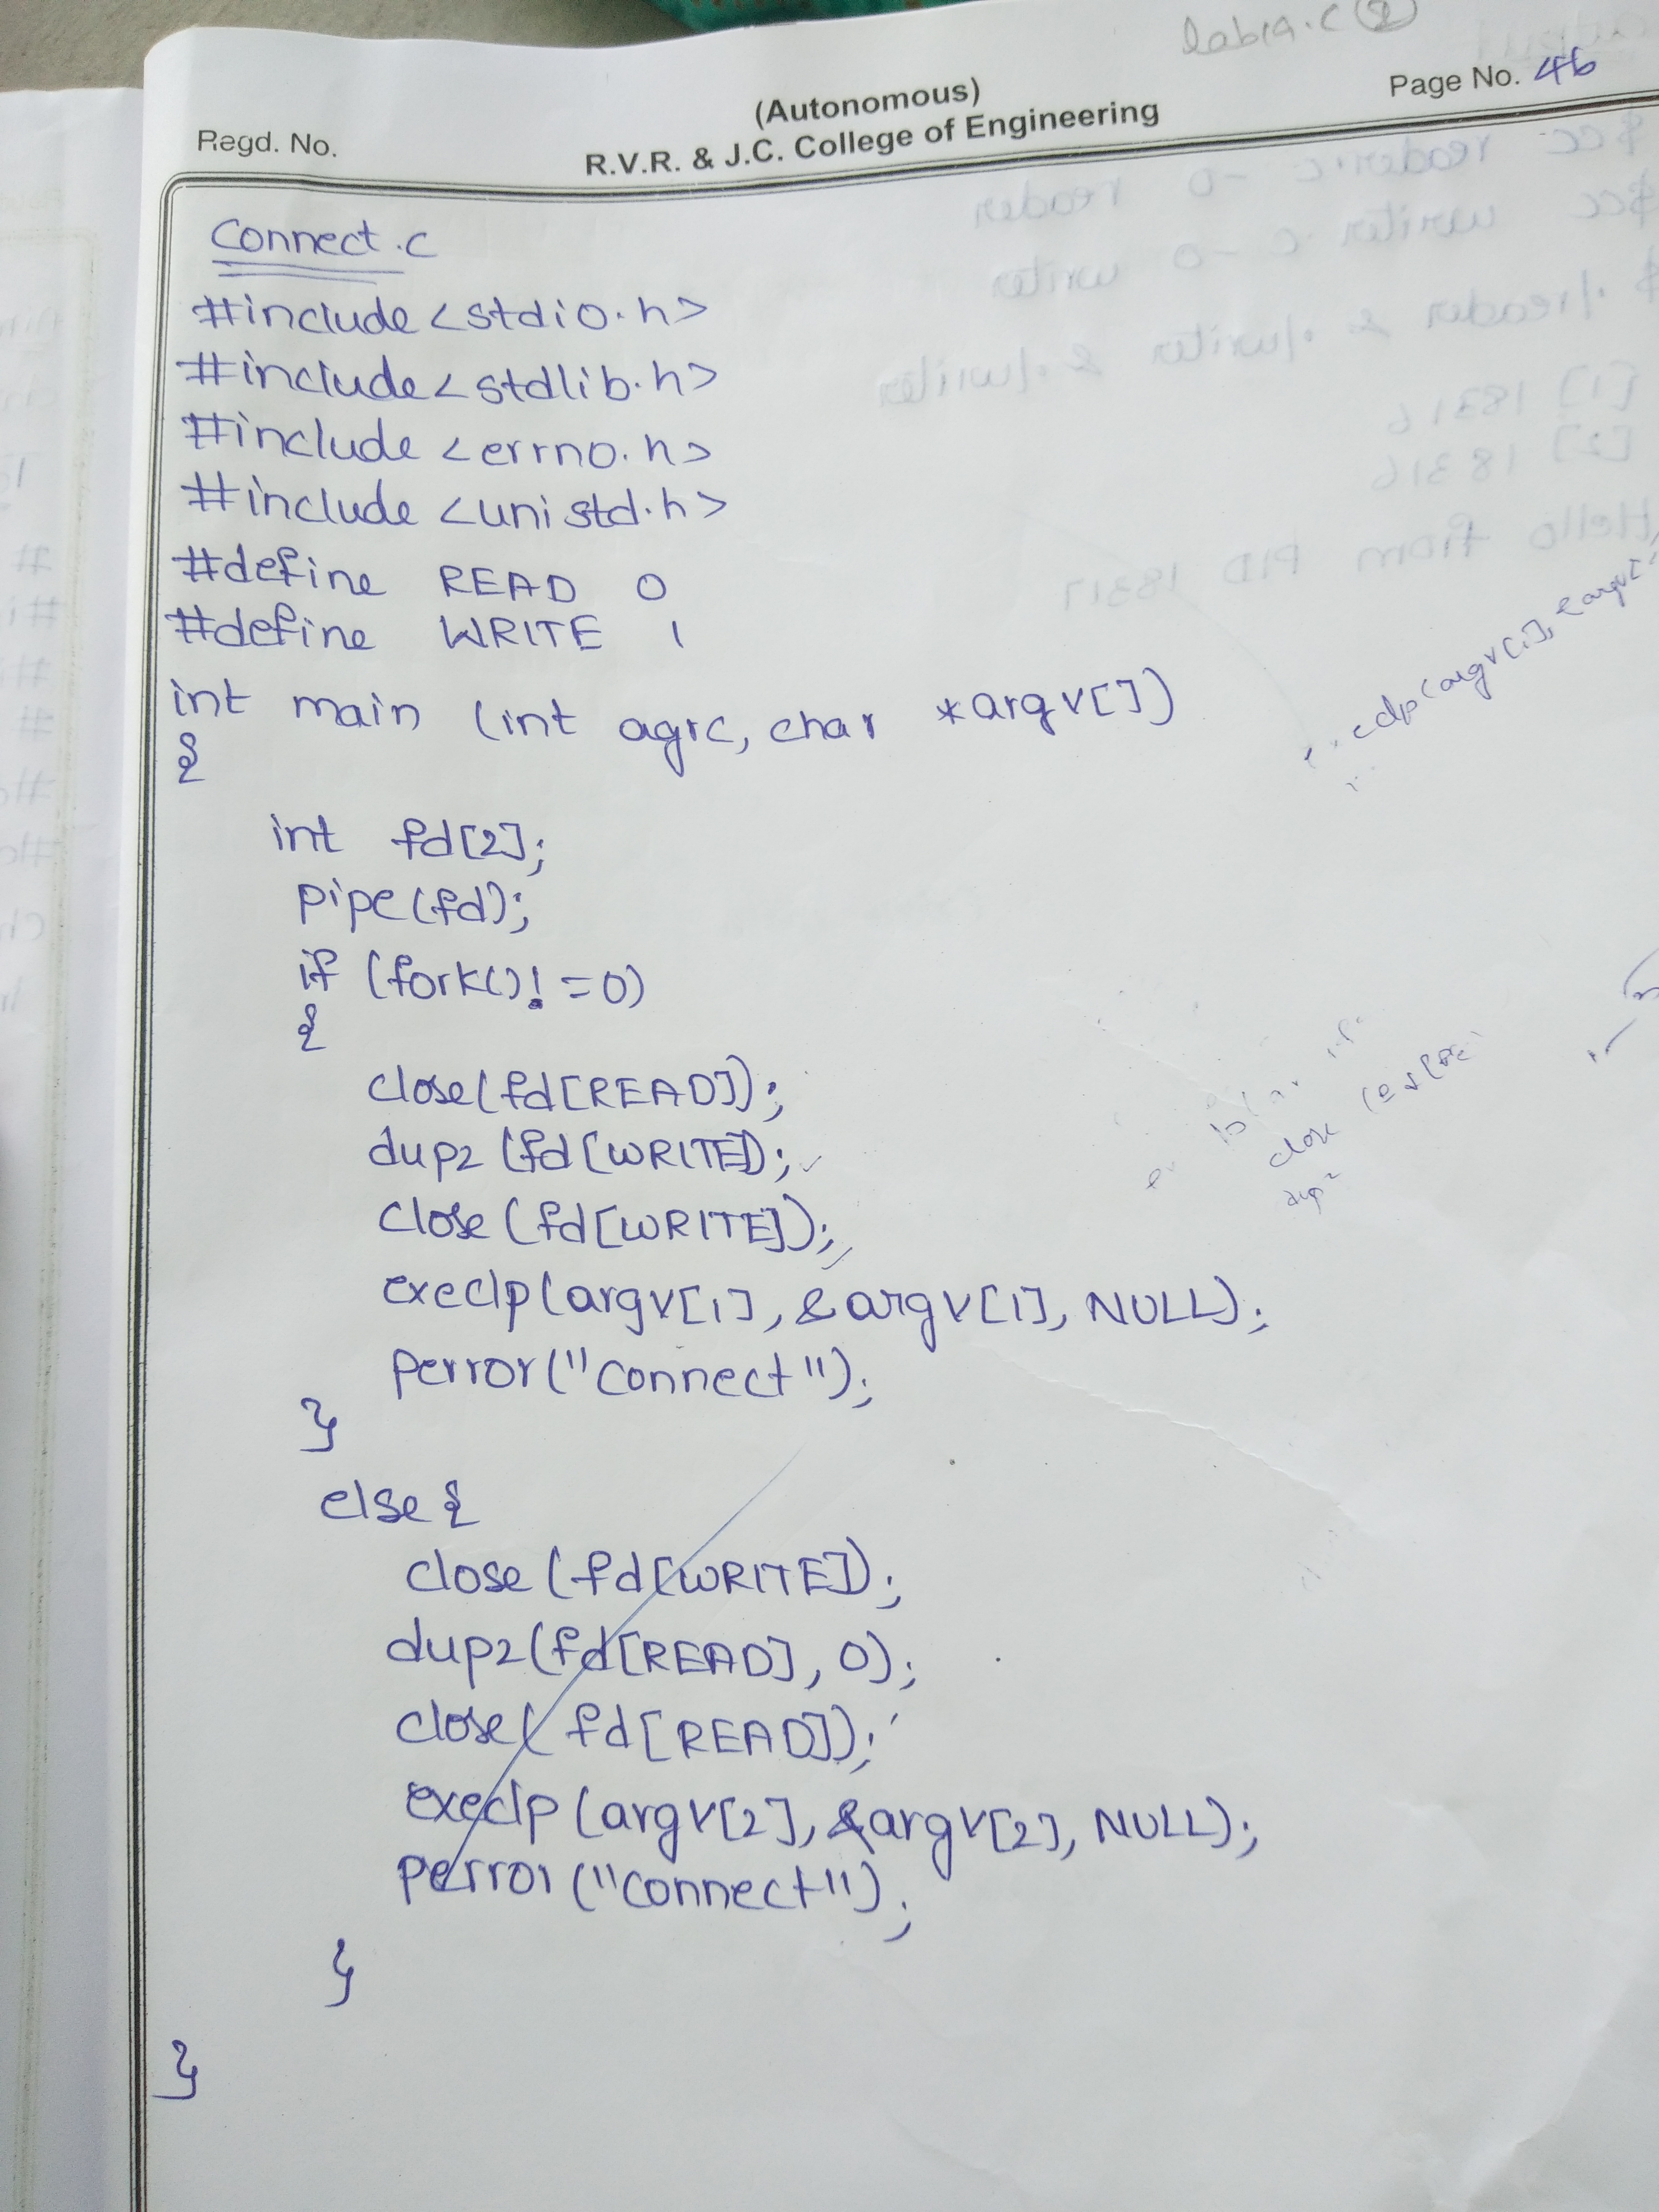 lab19.c 2
(Autonomous)
Page No. 46
Regd. No.
R.V.R. & J.C. College of Engineering
Connect.c
#include<stdio.h>
#include<stdlib.h>
#include<errno.h>
#include<unistd.h>
#define READ 0
#define WRITE 1
int main (int agrc, char *argv[])
{
int fd[2];
pipe(fd);
if (fork()!=0)
{
close(fd[READ]);
dup2(fd[WRITE]);
close(fd[WRITE]);
execlp(argv[1], &argv[1], NULL);
perror("connect");
}
else{
close(fd[WRITE]);
dup2(fd[READ], 0);
close(fd[READ]);
execlp(argv[2], &argv[2], NULL);
perror("connect");
}
}
clp(argv[1], &argv[
close
dup2